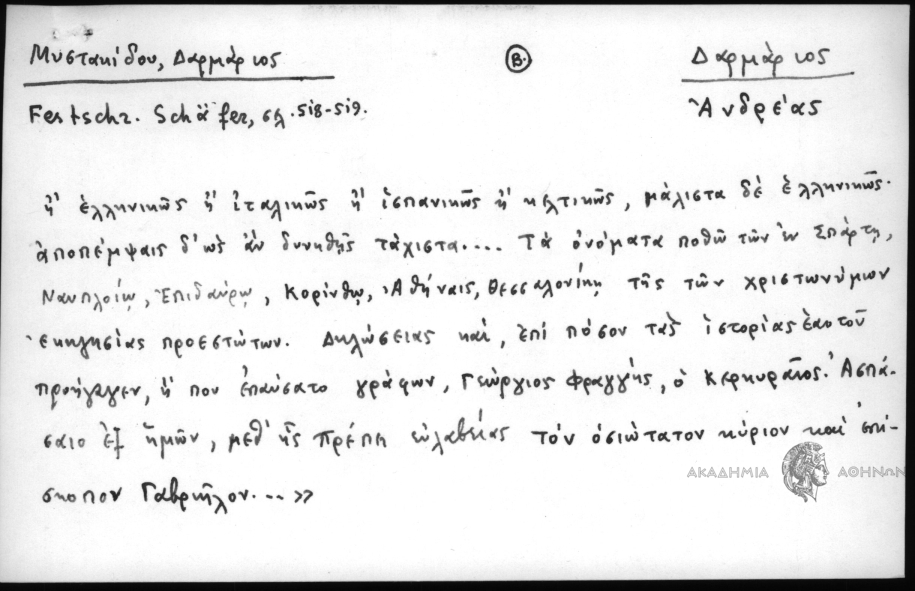 Μυστακίδου, Δαρμάριος
Β.
Δαρμάριος
Ἀνδρέας
Festschr. Schäfer, σελ. 518-519.
ἢ ἑλληνικῶς ἢ ἰταλικῶς ἢ ἱσπανικῶς ἢ κελτικῶς, μάλιστα δὲ ἑλληνικῶς.
ἀποπέμψαις δ' ὡς ἂν δυνηθῇς τάχιστα.... Τὰ ὀνόματα ποθῶ τῶν ἐν Σπάρτῃ,
Ναυπλοίῳ, Ἐπιδαύρῳ, Κορίνθῳ, Ἀθήναις, Θεσσαλονίκῃ τῆς τῶν χριστωνύμων
ἐκκλησίας προεστώτων. Δηλώσειας καὶ, ἐπὶ πόσον τὰς ἱστορίας ἑαυτοῦ
προήγαγεν, ἢ που ἐπαύσατο γράφων, Γεώργιος Φραγγῆς, ὁ Κερκυραῖος. Ἀσπά-
σαιο ἐξ ἡμῶν, μεθ' ἧς πρέπει εὐλαβείας τὸν ὁσιώτατον κύριον καὶ ἐπί-
σκοπον Γαβριῆλον...»
ΑΚΑΔΗΜΙΑ ΑΘΗΝΩΝ